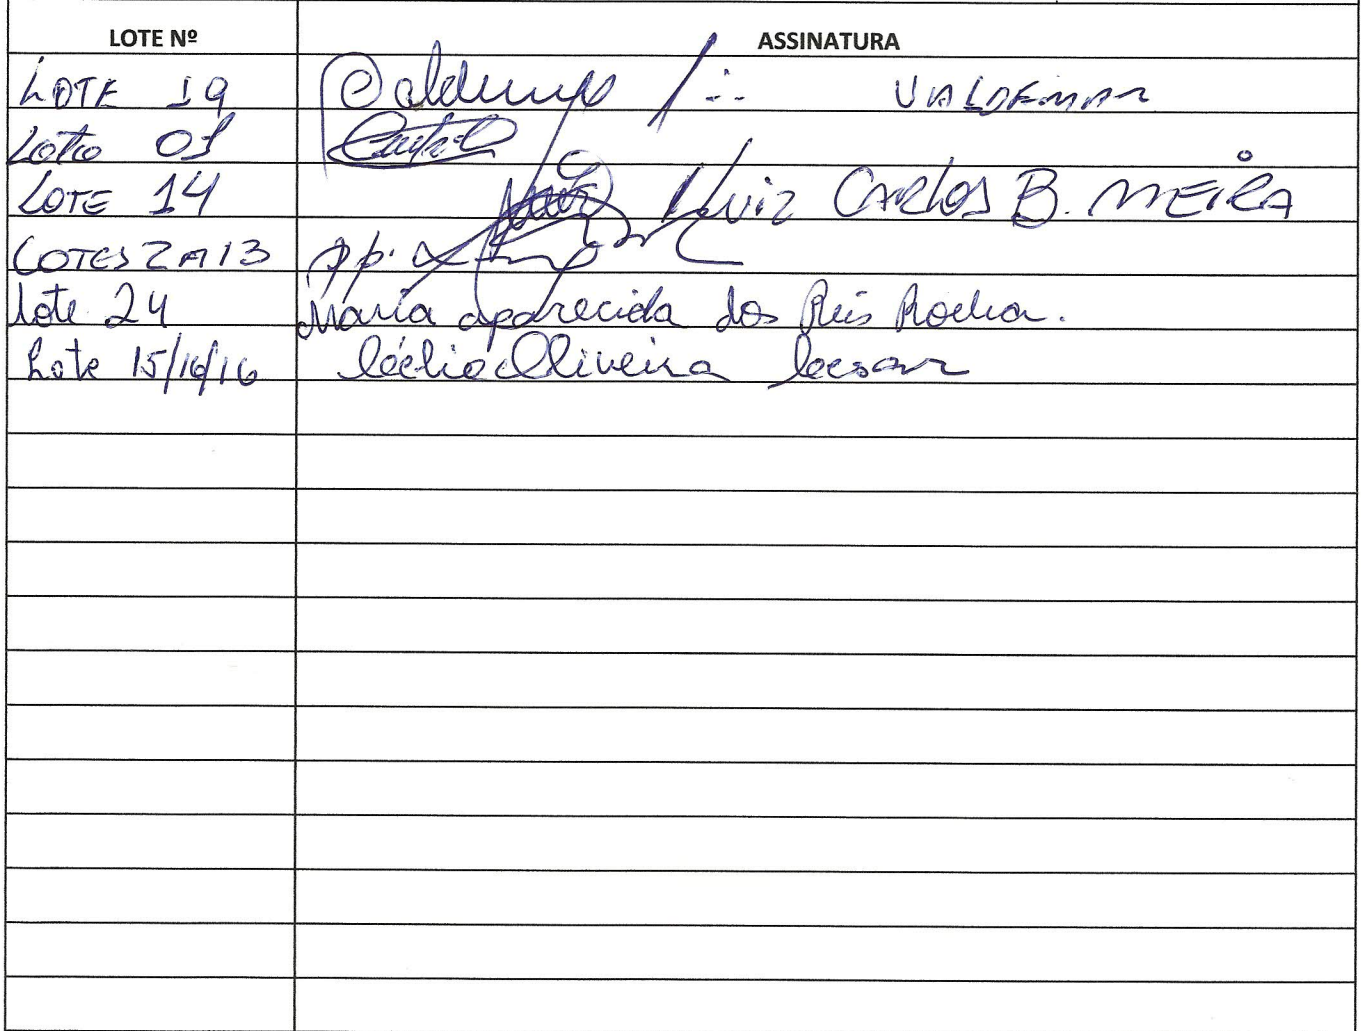 LOTE Nº ASSINATURA
LOTE 19 VALDEMAR
Lote 01
LOTE 14 Luiz CARLOS B. MEIRA
LOTES 2 A 13 pp.
Lote 24 Maria aparecida dos Reis Rocha.
Lote 15/16/16 Oliveira